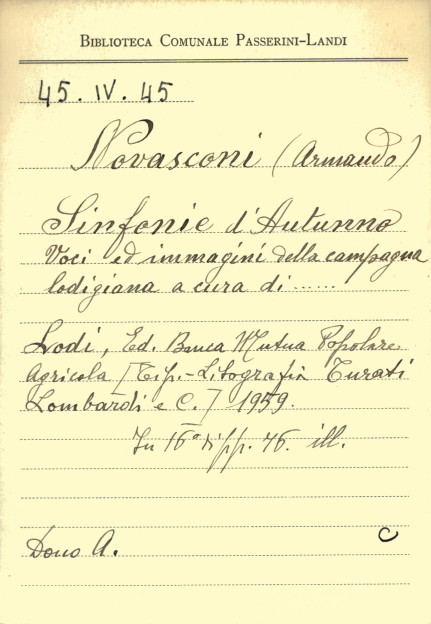 BIBLIOTECA COMUNALE PASSERINI-LANDI
45. IV. 45
Novasconi (Armando)
Sinfonie d'Autunno
Voci ed immagini della campagna
lodigiana a cura di ......
Lodi, Ed. Banca Mutua Popolare
Agricola [Tip.-Litografia Turati
Lombardi e C.] 1959.
In 16° di pp. 46. ill.
C
Dono A.